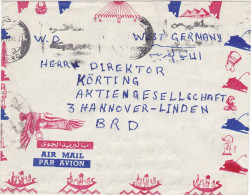 W.D. WEST GERMANY
HERRN DIREKTOR
KÖRTING
AKTIENGESELLSCHAFT
3 HANNOVER-LINDEN
BRD
AIR MAIL
PAR AVION